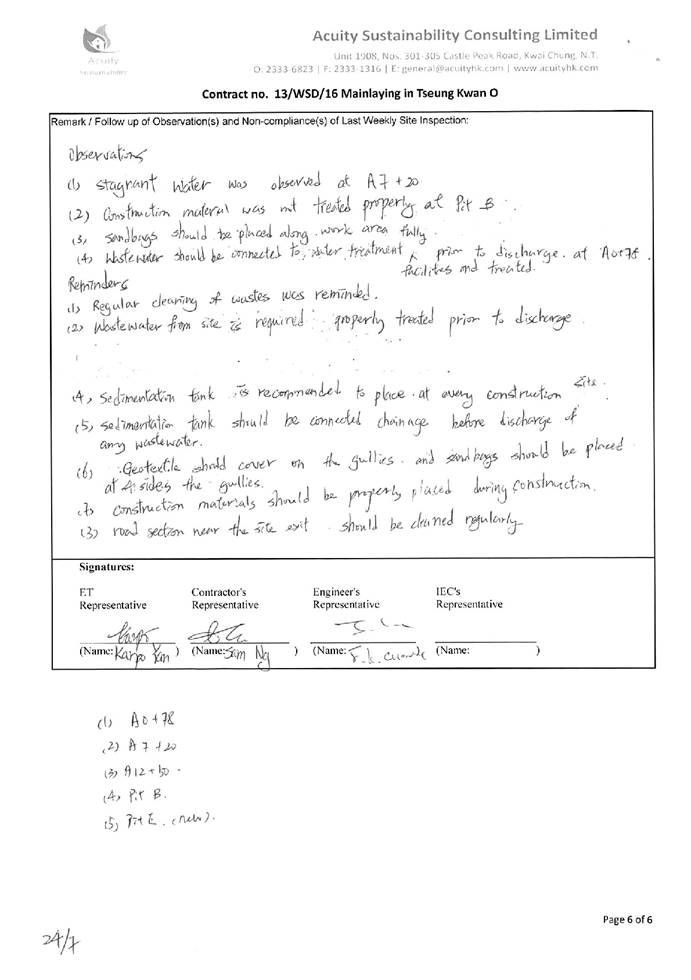 Acuity Sustainability Consulting Limited
Acuity
Sustainability
Unit 1908, Nos. 301-305 Castle Peak Road, Kwai Chung, N.T.
O: 2333-6823 | F: 2333-1316 | E: general@acuityhk.com | www.acuityhk.com
Contract no. 13/WSD/16 Mainlaying in Tseung Kwan O
Remark / Follow up of Observation(s) and Non-compliance(s) of Last Weekly Site Inspection:
Observations
(1) stagnant water was observed at A7+20
(2) Construction material was not treated properly at Pit B.
(3) sandbags should be placed along work area fully.
(4) Wastewater should be connected to water treatment facilities and treated. prior to discharge. at A0+78.
Reminders
(1) Regular cleaning of wastes was reminded.
(2) Wastewater from site is required properly treated prior to discharge
(4) Sedimentation tank is recommended to place at every construction site.
(5) sedimentation tank should be connected chainage before discharge of
any wastewater.
(6) Geotextile should cover on the gullies. and sandbags should be placed
at 4 sides the gullies.
construction materials should be properly placed during construction.
road section near the site exit should be cleaned regularly
Signatures:
ET Representative
Contractor's Representative
Engineer's Representative
IEC's Representative
(Name: Karpo Yan )
(Name: Sam Ng )
(Name:
(Name: )
(1) A0+78
(2) A7+20
(3) A12+50
(4) Pit B.
(5) Pit E. (new).
Page 6 of 6
24/7